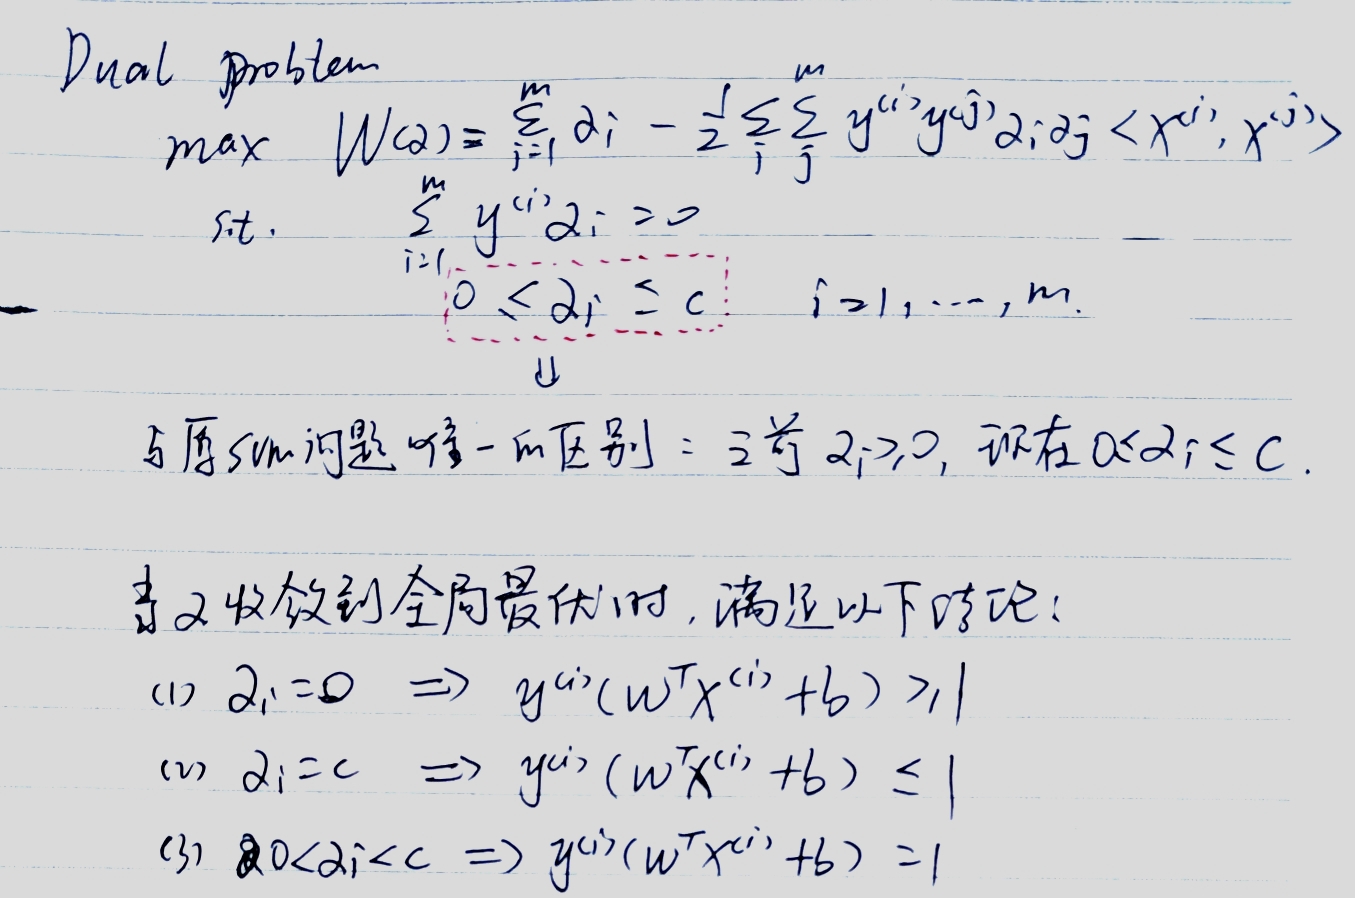 Dual problem
max W(α) = \sum_{i=1}^{m} α_i - \frac{1}{2} \sum_{i} \sum_{j}^{m} y^{(i)} y^{(j)} α_i α_j <x^{(i)}, x^{(j)}>
s.t. \sum_{i=1}^{m} y^{(i)} α_i = 0
0 ≤ α_i ≤ c i=1, ..., m.
⇓
与原SVM问题唯一的区别: 之前 α_i ≥ 0, 现在 0≤α_i≤ C.
当α收敛到全局最优时, 满足以下结论:
(1) α_i = 0 ⇒ y^{(i)}(w^T x^{(i)} + b) ≥ 1
(2) α_i = c ⇒ y^{(i)}(w^T x^{(i)} + b) ≤ 1
(3) 0<α_i<c ⇒ y^{(i)}(w^T x^{(i)} + b) = 1